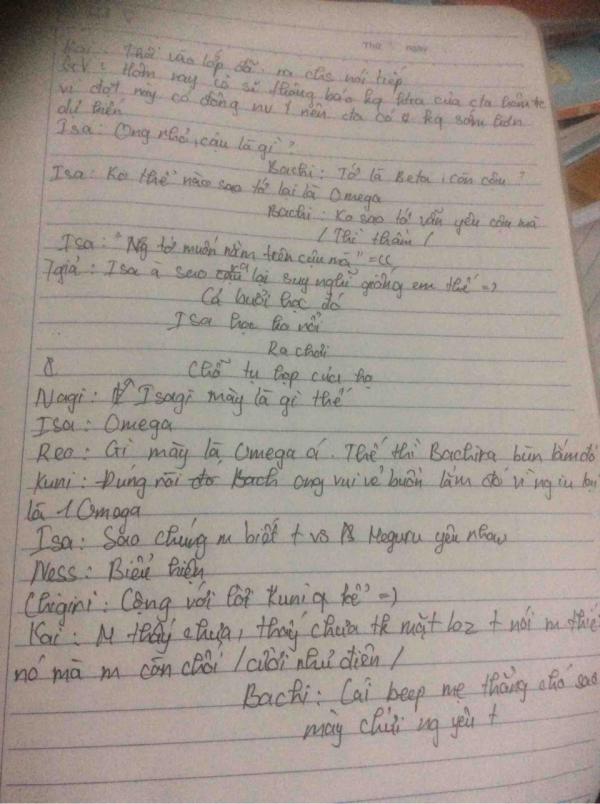 Thứ ngày
Kai: Thôi vào lớp đã, ra chs nói tiếp
GV: Hôm nay cô sẽ thông báo kq ktra của cta hôm
vì đợt này có đông nv 1 nên cta có kq sớm hơn
dự kiến
Isa: Ong nhỏ, cậu là gì?
Bachi: Tớ là Beta, còn cậu?
Isa: Ko thể nào sao tớ lại là Omega
Bachi: Ko sao tớ vẫn yêu cậu mà
/ Thì thầm /
Isa: "Ng tớ muốn nằm trên cậu mà" =((
Tgiả: Isa à sao lại suy nghĩ giống em thế =)
Cả buổi học đó
Isa học ko nổi
Ra chơi
Chỗ tụ họp của họ
Nagi: Isagi mày là gì thế
Isa: Omega
Reo: Gì mày là Omega á. Thế thì Bachira bùn lắm đó
Kuni: Đúng rồi đó Bach ong vui vẻ buồn lắm đó vì ng iu
là 1 Omega
Isa: Sao chúng m biết t vs Meguru yêu nhau
Ness: Biểu hiện
Chigiri: Cộng với lời Kuni kể =)
Kai: M thấy chưa, thấy chưa tk mặt loz t nói m thích
nó mà m còn chối / cười như điên /
Bachi: Cái beep mẹ thằng chó sao
mày chửi ng yêu t